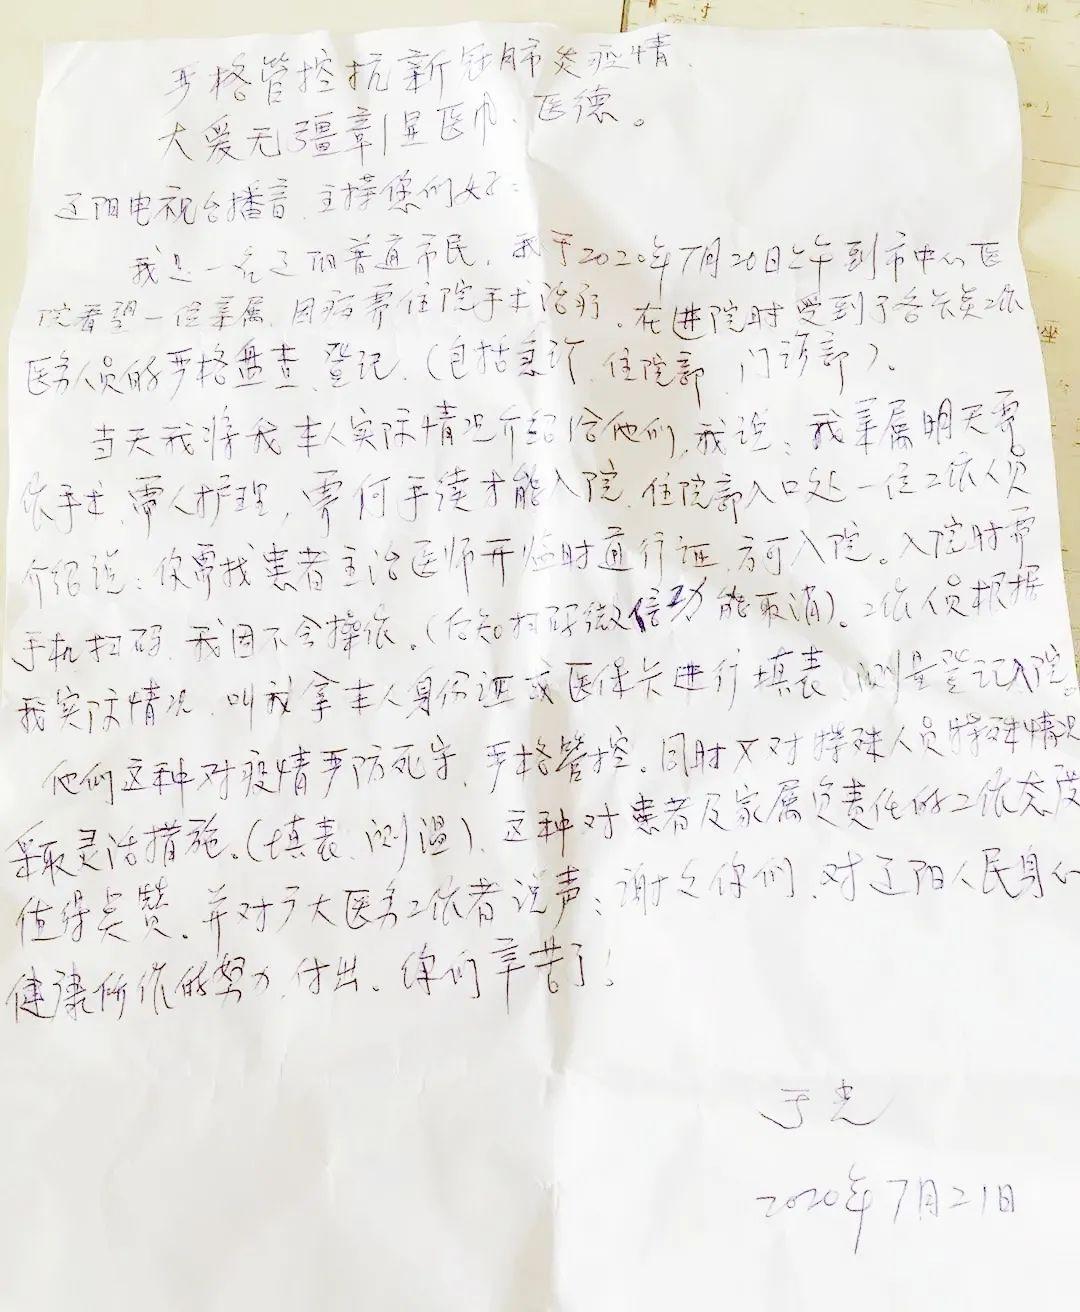 严格管控抗新冠肺炎疫情、
大爱无疆彰显医巾、医德。
辽阳电视台播音、主持您们好：
我是一名辽阳普通市民，我于2020年7月20日上午到市中心医
院看望一位亲属，因病需住院手术治疗。在进院时受到了各关员工作
医务人员的严格盘查、登记、（包括急诊、住院部、门诊部）。
当天我将我本人实际情况介绍给他们，我说：我亲属明天要
做手术，需人护理，需何手续才能入院，住院部入口处一位工作人员
介绍说：你需找患者主治医师开临时通行证，方可入院。入院时需
手机扫码，我因不会操作。（后知扫码微信功能取消）。工作人员根据
我实际情况，叫我拿本人身份证或医保卡进行填表、测量登记入院。
他们这种对疫情严防死守，严格管控。同时又对特殊人员特殊情况
采取灵活措施。（填表、测温）、这种对患者及家属负责任的工作态度
值得点赞。并对广大医务工作者说声：谢文你们，对辽阳人民身心
健康所作的努力、付出、你们辛苦了！
于光
2020年7月21日